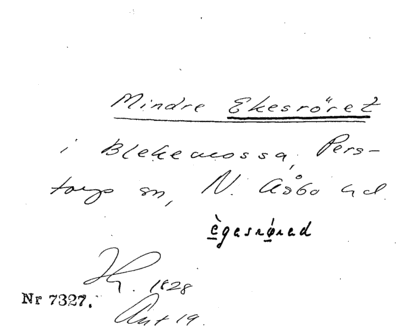 Mindre Ekesröret
i Blekemossa, Pers-
torps sn, N. Åsbo hd.
ègesrǿred
1828
Nr 7327.
Ant 19.